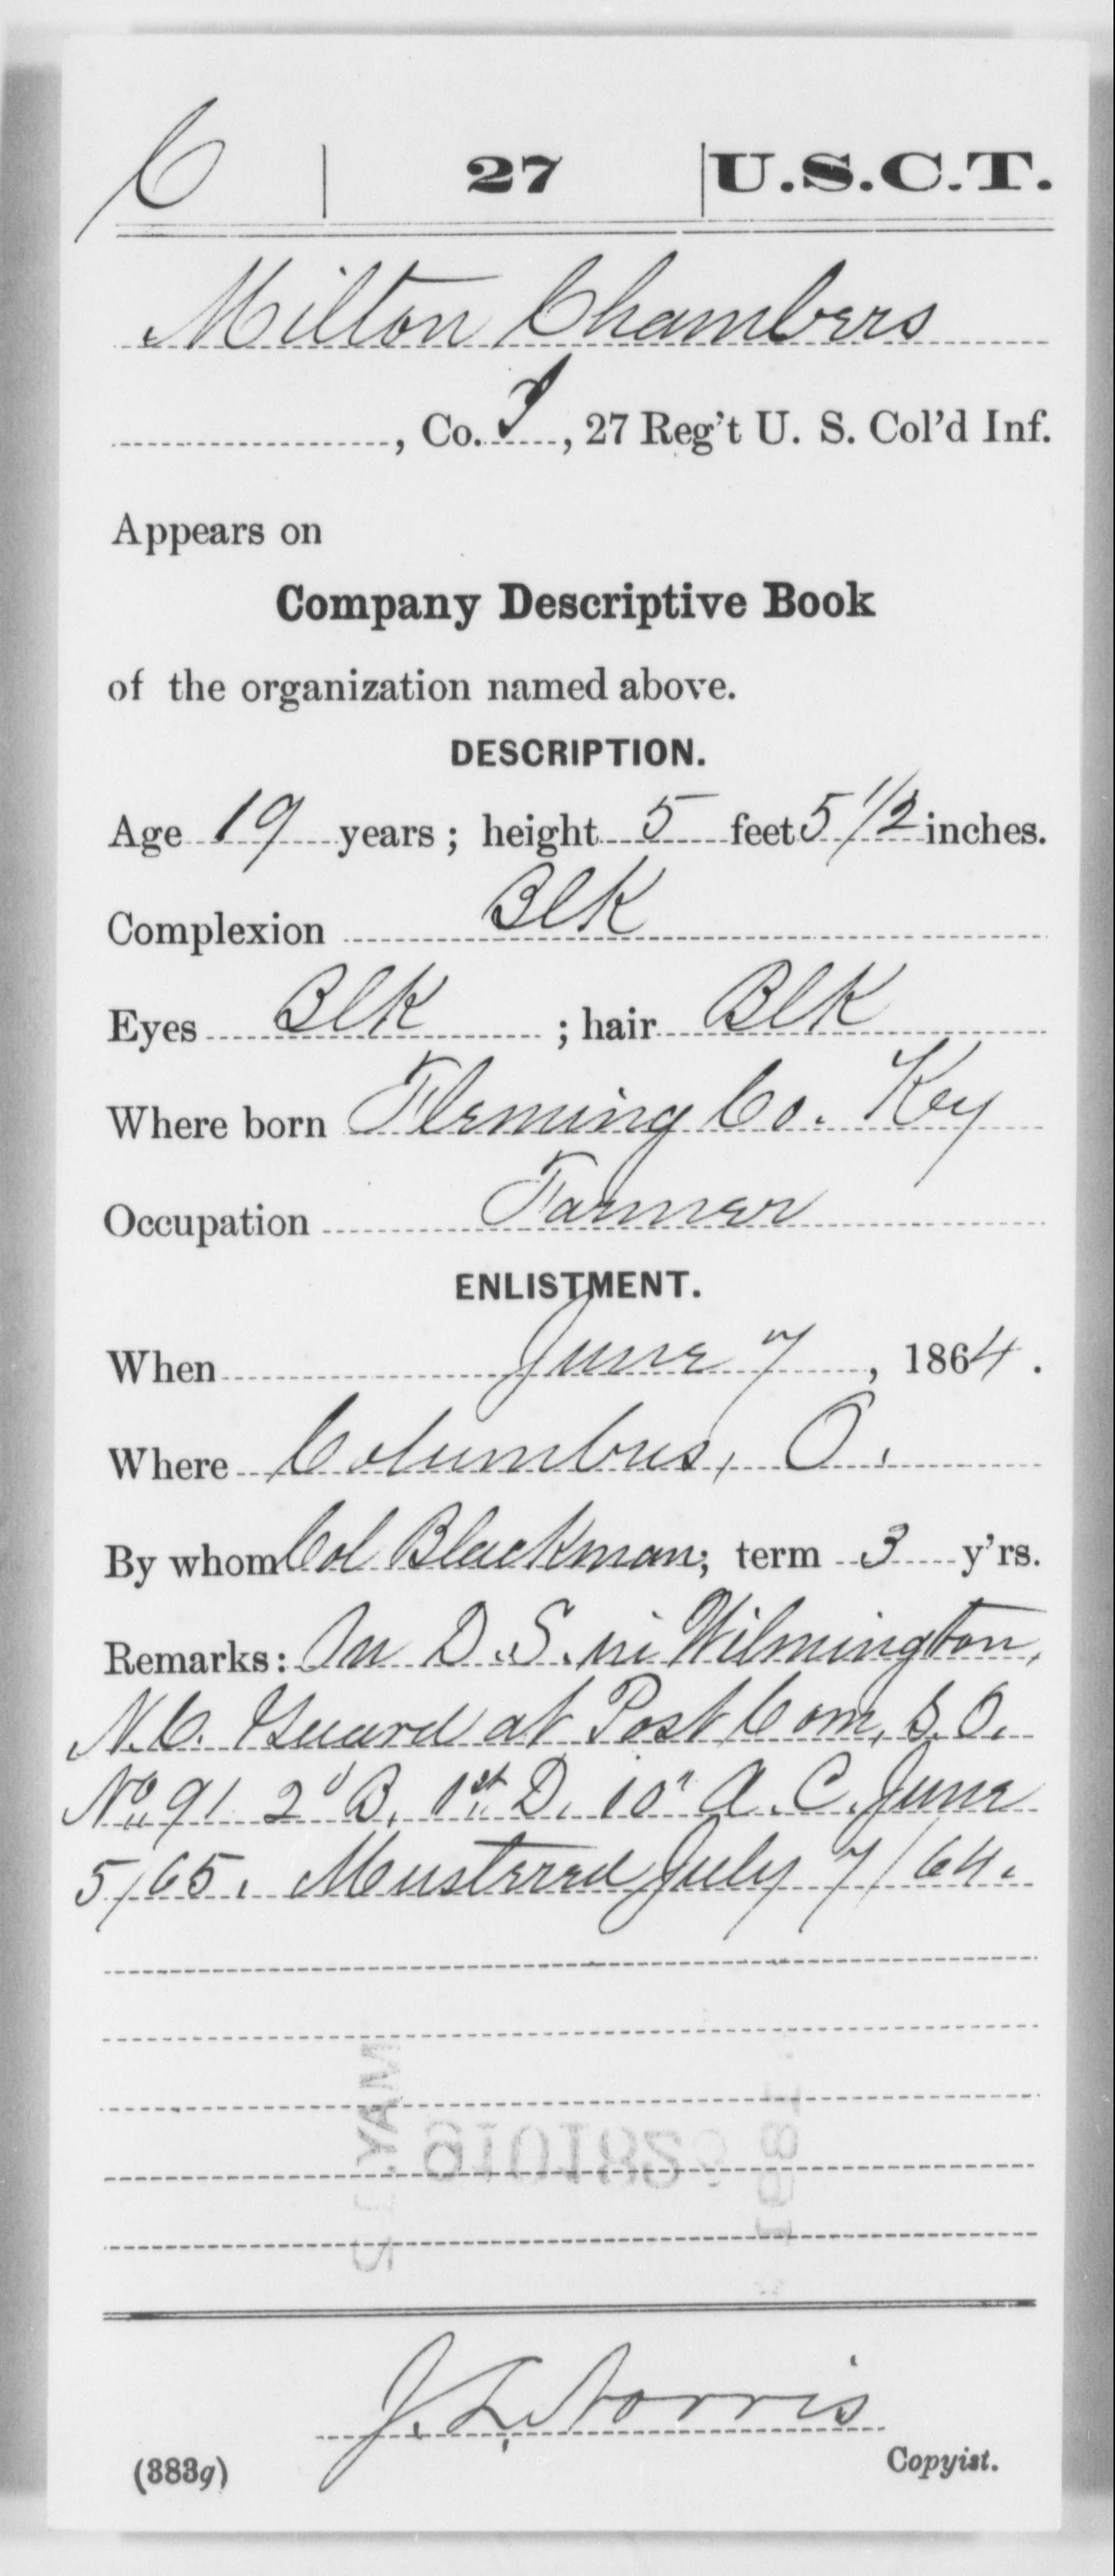 C | 27 | U.S.C.T.
Milton Chambers
, Co. I, 27 Reg't U. S. Col'd Inf.
Appears on
Company Descriptive Book
of the organization named above.
DESCRIPTION.
Age 19 years; height 5 feet 5 1/2 inches.
Complexion Blk
Eyes Blk ; hair Blk
Where born Fleming Co. Key
Occupation Farmer
ENLISTMENT.
When June 7, 1864.
Where Columbus, O.
By whom Col Blackman; term 3 y'rs.
Remarks: On D.S. in Wilmington,
N.C. Guard at Post Com, S.O.
No 91 2d B. 1st D. 10" A.C. June
5/65. Mustered July 7/64.
J. L. Norris
(383g) Copyist.